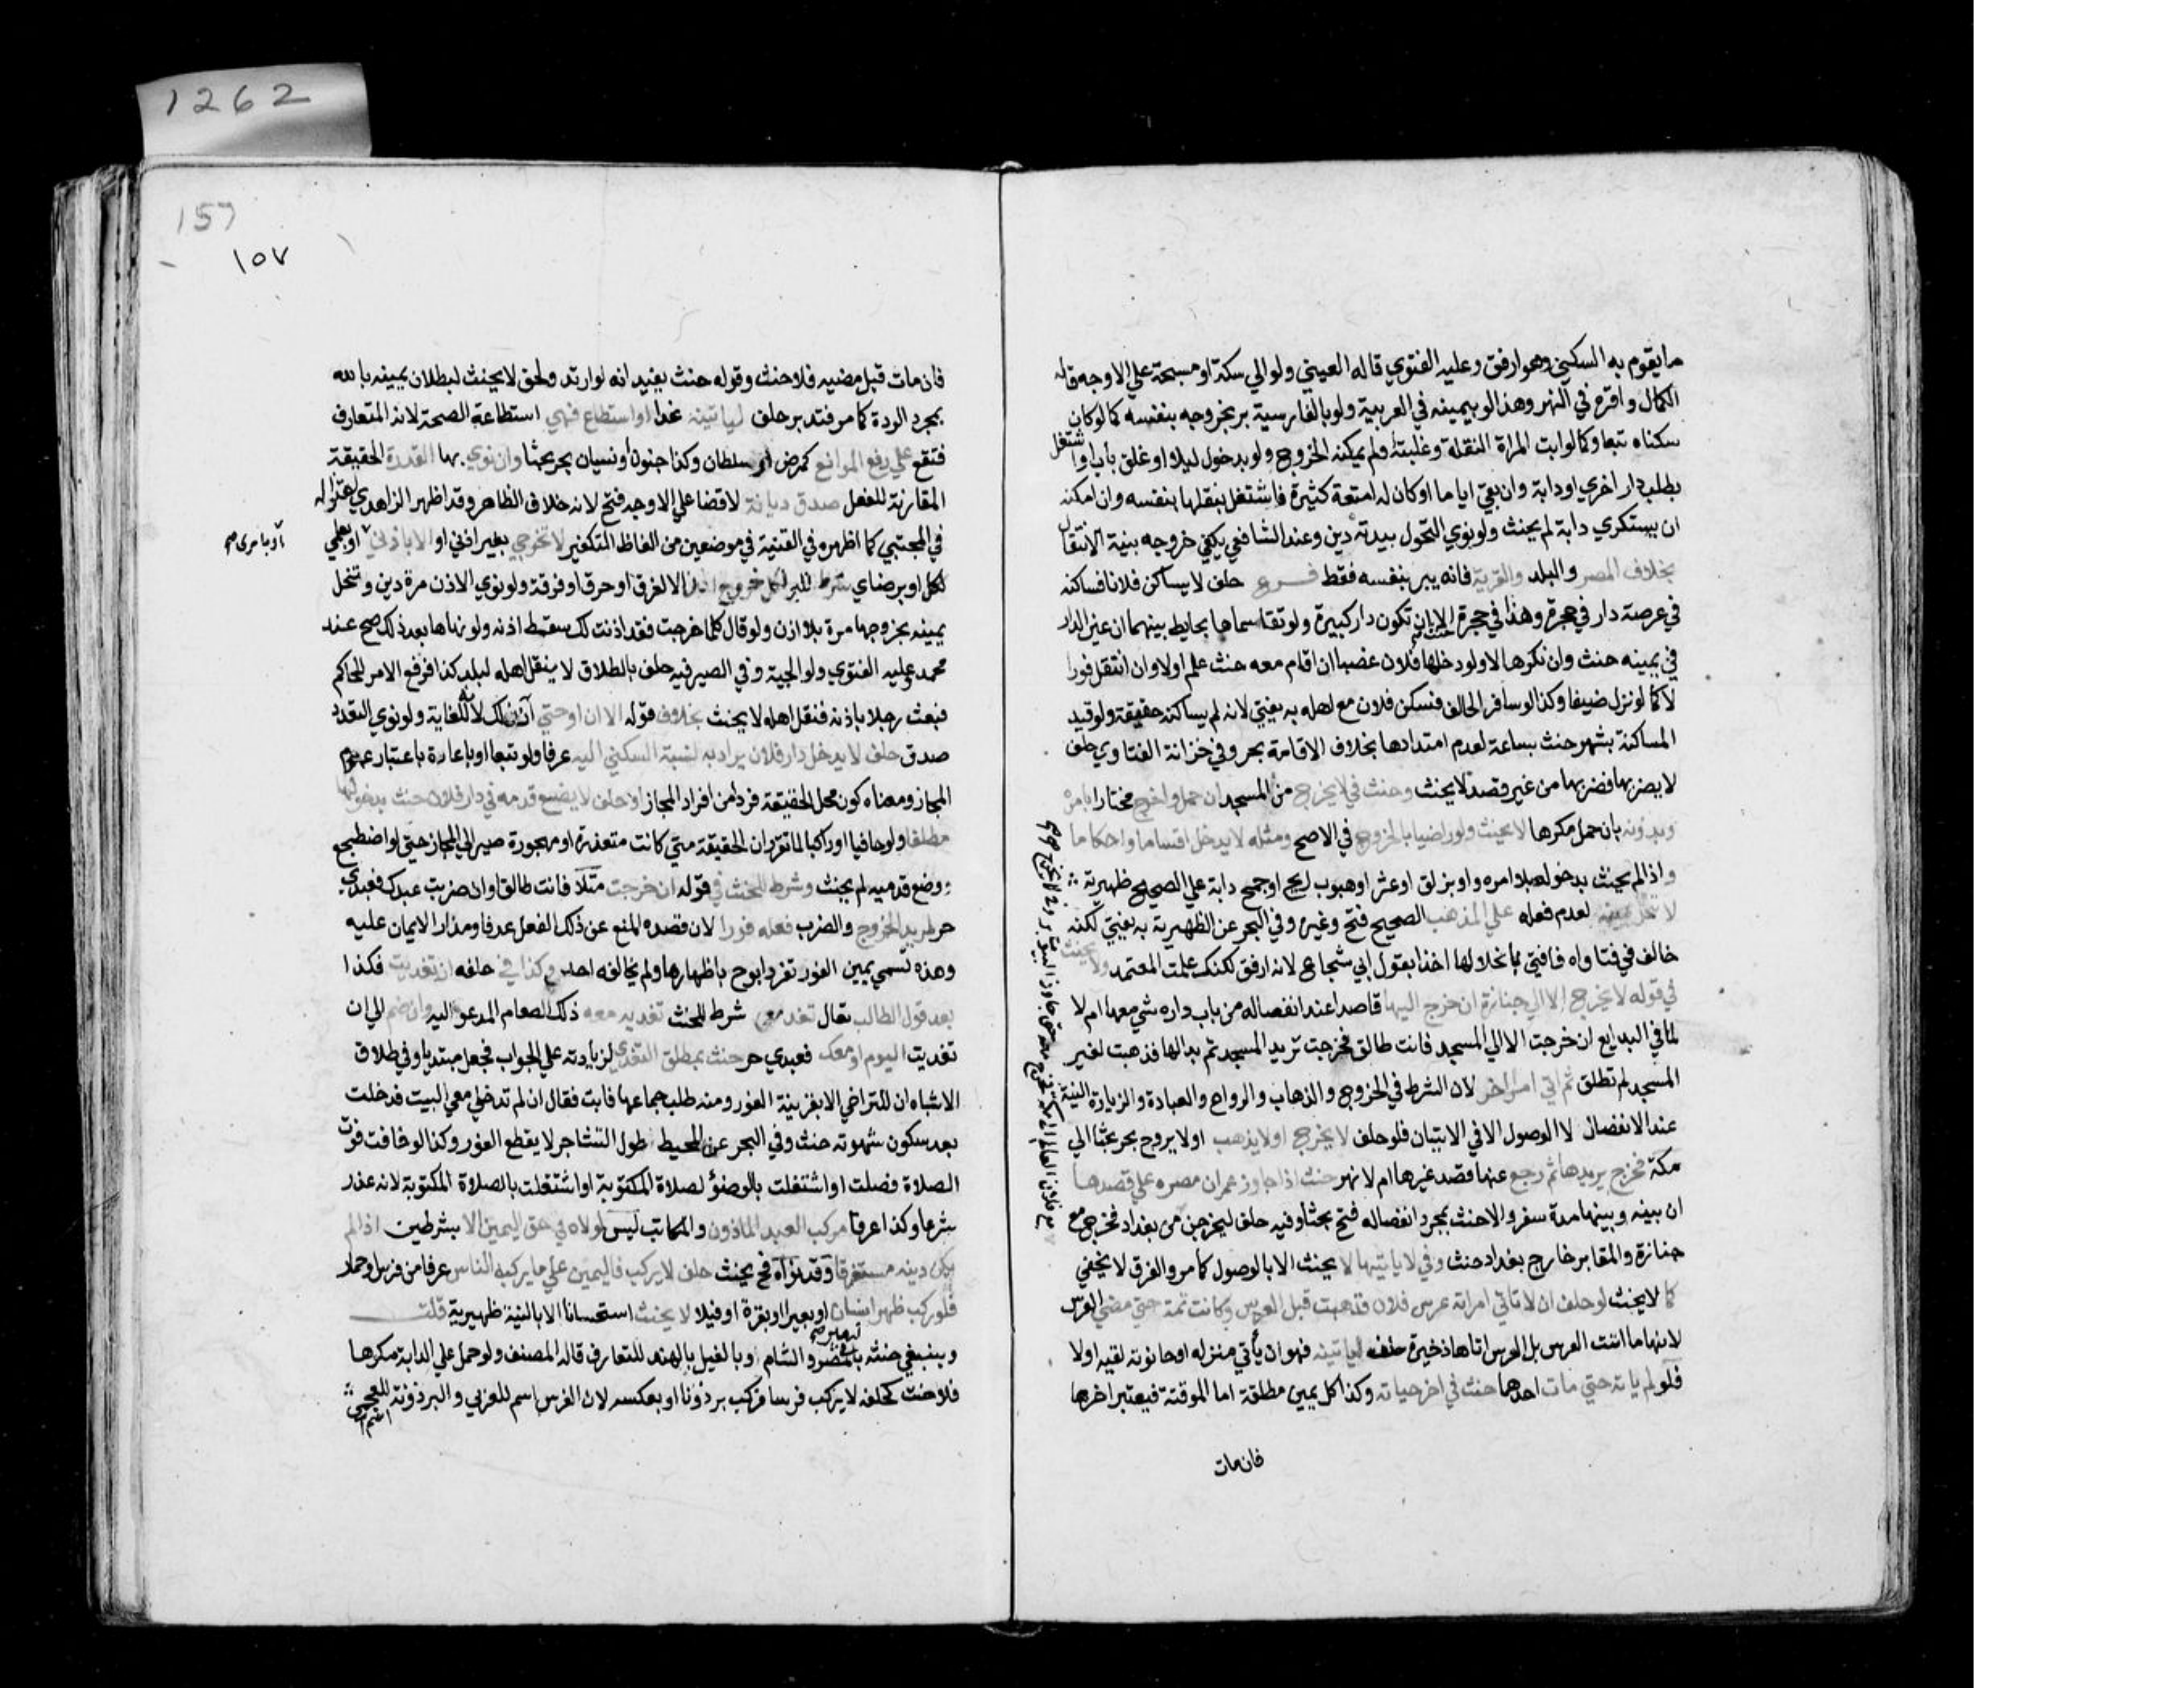 1262
157
١٥٧
ما يقوم به السكني وهو ارفق وعليه الفتوي قاله العيني ولو الي سكة او مسجد علي الاوجه قاله
الكمال واقره في النهر وهذا لو بيمينه في العربية ولو بالفارسية بر بخروجه بنفسه كما لو كان
سكناه تبعا وكما لو ابت المراة النقلة وغلبته ولم يمكنه الخروج ولو بدخول ليلا او غلق باب او اشتغل
بطلب دار اخري او دابة وان بقي اياما او كان له امتعة كثيرة فاشتغل بنقلها بنفسه وان امكنه
ان يستكري دابة لم يحنث ولو نوي التحول ببدنه دين وعند الشافعي يكفي خروجه بنية الانتقال
بخلاف المصر والبلد والقرية فانه يبر بنفسه فقط فـرع حلف لا يساكن فلانا فساكنه
في عرصة دار في حجرة وهذا في حجرة حنث الا ان تكون دار كبيرة ولو تقاسماها بحايط بينهما ان عين الدار
في يمينه حنث وان نكرها لا ولو دخلها فلان غصبا ان اقام معه حنث علم اولا وان انتقل فورا
لا كما لو نزل ضيفا وكذا لو سافر الحالف فسكن فلان مع اهله به يفتي لانه لم يساكنه حقيقة ولو قيد
المساكنة بشهر حنث بساعة لعدم امتدادها بخلاف الاقامة بحر وفي خزانة الفتاوي حلف
لا يضربها فضربها من غير قصد لا يحنث وحنث في لا يخرج من المسجد ان حمل واخرج مختارا بامره
وبدونه بان حمل مكرها لا يحنث ولو راضيا بالخروج في الاصح ومثله لا يدخل اقساما واحكاما
واذا لم يحنث بدخوله بلا امره او بزلق او عثر او هبوب ريح او جمح دابة علي الصحيح ظهيرية
لا تنحل يمينه لعدم فعله علي المذهب الصحيح فتح وغيره وفي البحر عن الظهيرية به يفتي لكنه
خالف في فتاواه فافتي بانحلالها اخذا بقول ابي شجاع لانه ارفق لكنك علمت المعتمد ولا يحنث
في قوله لا يخرج الا الي جنازة ان خرج اليها قاصدا عند انفصاله من باب داره مشي معها ام لا
لما في البدايع ان خرجت الا الي المسجد فانت طالق فخرجت تريد المسجد ثم بدا لها فذهبت لغير
المسجد لم تطلق ثم اتي امرا اخر لان الشرط في الخروج والذهاب والرواح والعيادة والزيارة النية
عند الانفصال لا الوصول الا في الاتيان فلو حلف لا يخرج او لا يذهب او لا يروح بحر بحثا الي
مكة فخرج يريدها ثم رجع عنها قصد غيرها ام لا نهر حنث اذا جاوز عمران مصره علي قصدها
ان بينه وبينها مدة سفر والا حنث بمجرد انفصاله فتح بحثا وفيه حلف ليخرجن من بغداد فخرج مع
جنازة والمقابر خارج بغداد حنث وفي لا ياتيها لا يحنث الا بالوصول كما مر والفرق لا يخفي
كما لا يحنث لو حلف ان لا تاتي امراته عرس فلان فذهبت قبل العرس وكانت ثمة حتي مضي العرس
لانها ما اتت العرس بل العرس اتاها ذخيرة حلف لياتينه فهو ان يأتي منزله او حانوته لقيه اولا
فلو لم ياته حتي مات احدهما حنث في اخر حياته وكذا كل يمين مطلقة اما الموقتة فيعتبر اخرها
فان مات
فان مات قبل مضيه فلا حنث وقوله حنث يفيد انه لو ارتد ولحق لا يحنث لبطلان يمينه بالله
بمجرد الردة كما مر فتدبر حلف لياتينه غدا او استطاع فهي استطاعة الصحة لانه المتعارف
فتقع علي رفع الموانع كمرض او سلطان وكذا جنون او نسيان بحر بحثا وان نوي بها القدرة الحقيقة
المقارنة للفعل صدق ديانة لا قضا علي الاوجه فتح لانه خلاف الظاهر وقد اظهر الزاهدي اعتزاله
في المجتبي كما اظهره في القنية في موضعين من الفاظ التكفير لا تخرجي بغير اذني او الا باذني او بعلمي
او بامري صح
لكل او برضاي شرط للبر لكل خروج اذن الا لغرق او حرق او فرقة ولو نوي الاذن مرة دين وتنحل
يمينه بخروجها مرة بلا اذن ولو قال كلما خرجت فقد اذنت لك سقط اذنه ولو نهاها بعد ذلك صح عند
محمد وعليه الفتوي ولوالجية وفي الصيرفيه حلف بالطلاق لا ينقل اهله لبلد كذا فرفع الامر للحاكم
فبعث رجلا باذنه فنقل اهله لا يحنث بخلاف قوله الا ان او حتي آذن لك لانه للغاية ولو نوي التعدد
صدق حلف لا يدخل دار فلان يراد به نسبة السكني اليه عرفا ولو تبعا او باعارة باعتبار عموم
المجاز ومعناه كون محل الحقيقة فردا من افراد المجاز او حلف لا يضع قدمه في دار فلان حنث بدخولها
مطلقا ولو حافيا او راكبا لما تقرر ان الحقيقة متي كانت متعذرة او مهجورة صير الي المجاز حتي لو اضطجع
ووضع قدميه لم يحنث وشرط للحنث في قوله ان خرجت مثلا فانت طالق او ان ضربت عبدك فعبدي
حر لمريد الخروج والضرب فعله فورا لان قصده المنع عن ذلك الفعل عرفا ومدار الايمان عليه
وهذه تسمي يمين الفور تفرد ابو ح باظهارها ولم يخالفه احد وكذا في حلفه ان تغديت فكذا
بعد قول الطالب تعال تغد معي شرط للحنث تغديه معه ذلك الطعام المدعو اليه وان ضم الي ان
تغديت اليوم او معك فعبدي حر حنث بمطلق التغدي لزيادته علي الجواب فجعل مبتديا وفي طلاق
الاشباه ان للتراخي الا بقرينة الفور ومنه طلب جماعها فابت فقال ان لم تدخلي معي البيت فدخلت
بعد سكون شهوته حنث وفي البحر عن المحيط طول التشاجر لا يقطع الفور وكذا لو خافت فوت
الصلاة فصلت او اشتغلت بالوضؤ لصلاة المكتوبة او اشتغلت بالصلاة المكتوبة لانه عذر
شرعا وكذا عرفا مركب العبد الماذون والمكاتب ليس لمولاه في حق اليمين الا بشرطين اذا لم
يكن دينه مستغرقا وقد نواه فح يحنث حلف لا يركب فاليمين علي ما يركبه الناس عرفا من فرس وحمار
فلو ركب ظهر انسان او بعيرا او بقرة او فيلا لا يحنث استحسانا الا بالنية ظهيرية قلت
وينبغي حنثه بالبعير في مصر والشام وبالفيل بالهند للتعارف قاله المصنف ولو حمل علي الدابة مكرها
فلا حنث كحلفه لا يركب فرسا فركب برذونا او بعكسه لان الفرس اسم للعربي والبرذونة للعجمي